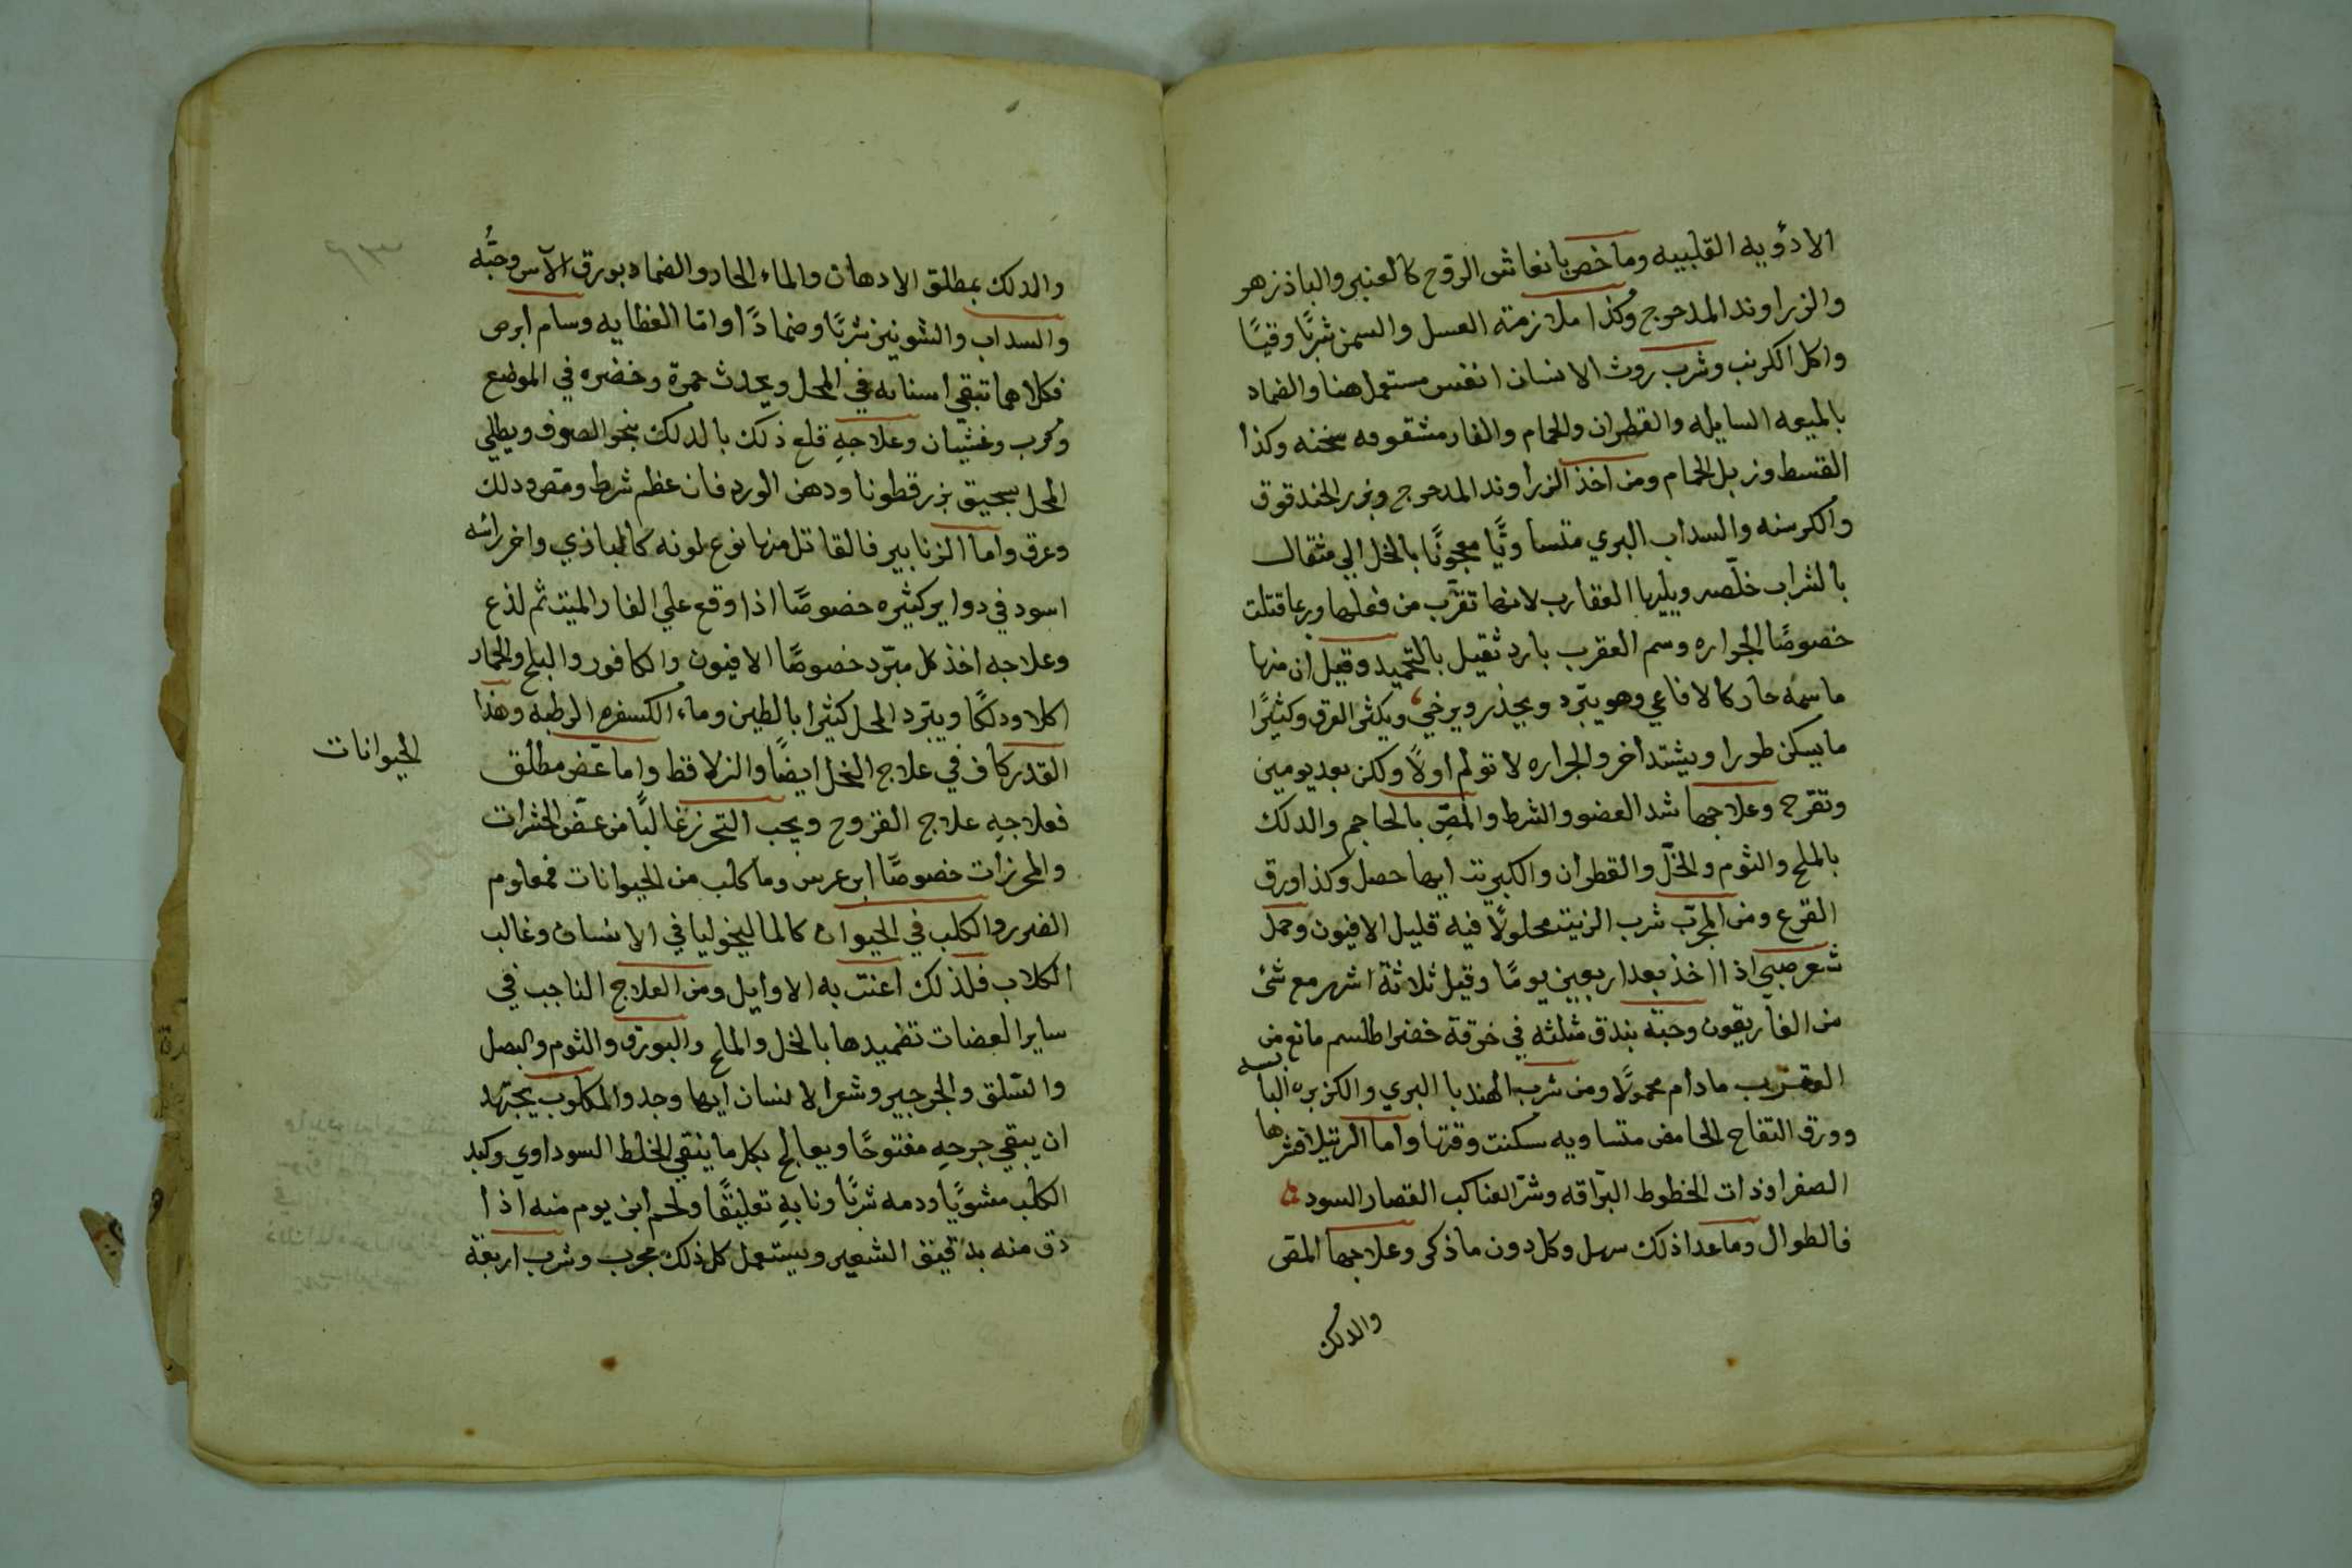 الادويه القلبيه وما خص بانعاش الروح كالعنبر والباذزهر
والزراوند المدحرج وكذا ملازمته العسل والسمن شربًا وقيًا
واكل الكرنب وشرب روث الانسان انفس مستعمل هنا والضماد
بالميعه السايله والقطران والحمام والفار مشقوقه سخنه وكذا
القسط وزبل الحمام ومن اخذ الزراوند المدحرج وبزر الحندقوق
والكرسنه والسداب البري متساويًا معجونًا بالخل الي مثقال
بالشراب خلّصه ويليها العقارب لانها تقرب من فعلها وربما قتلت
خصوصًا الجراره وسم العقرب بارد ثقيل بالتجميد وقيل ان منها
ما سمه حار كالافاعي وهو يبرد ويخذر ويرخي ويكثر العرق وكثيرًا
ما يسكن طورا ويشتد اخر والجراره لا تولم اولًا ولكن بعد يومين
وتقرح وعلاجها شد العضو والشرط والمصّ بالمحاجم والدلك
بالملح والثوم والخلّ والقطران والكبريت ايها حصل وكذا ورق
القرع ومن المجرّب شرب الزيت محلولًا فيه قليل الافيون وحمل
شعر صبي اذا اخذ بعد اربعين يومًا وقيل ثلاثة اشهر مع شئ
من الغاريقون وحبّة بندق مثلثه في خرقة خضرا طلسم مانع من
العقرب مادام محمولًا ومن شرب الهندبا البري والكزبره اليابسه
وورق التفاح الحامض متساويه سكنت وقتها واما الرتيلا فشرها
الصفرا وذات الخطوط البرّاقه وشرّ العناكب القصار السود
فالطوال وما عدا ذلك سهل وكل دون ما ذكر وعلاجها المص
والدلك
والدلك بمطلق الادهان والماء الحار والضماد بورق الآس وحبّه
والسداب والشونيز شربًا وضمادًا واما العظايه وسام ابرص
فكلاهما تبقي اسنانه في المحل ويحدث حمرة وخضره في الموضع
وكرب وغثيان وعلاجه قلع ذلك بالدلك بنحو الصوف ويطلي
المحل بسحيق بزر قطونا ودهن الورد فان عظم شرط ومص ودلك
وعرق واما الزنابير فالقاتل منها نوع لونه كالباذي واخر راسه
اسود في دواير كثيره خصوصًا اذا وقع علي الفار الميت ثم لذع
وعلاجه اخذ كل مبرّد خصوصًا الافيون والكافور والبلح والخمار
اكلا ودلكًا ويبرد المحل كثيرا بالطين وماء الكسفره الرطبه وهذا
القدر كاف في علاج النخل ايضًا والزلاقط واما عضّ مطلق
الحيوانات
فعلاجه علاج القروح ويجب التحرز غالبًا من عضّ الحشرات
والمحرزات خصوصًا ابن عرس وما كلب من الحيوانات فمعلوم
الضرر والكلب في الحيوان كالماليخوليا في الانسان وغالب
الكلاب فلذلك اعنت به الاوايل ومن العلاج الناجب في
ساير العضات تضميدها بالخل والملح والبورق والثوم والبصل
والسّلق والجرجير وشعر الانسان ايها وجد والمكلوب يجتهد
ان يبقي جرحه مفتوحًا ويعالج بكل ما ينقي الخلط السوداوي وكبد
الكلب مشويًا ودمه شربًا ونابه تعليقًا ولحم ابن يوم منه اذا
دق منه بدقيق الشعير ويستعمل كل ذلك مجرب وشرب اربعة